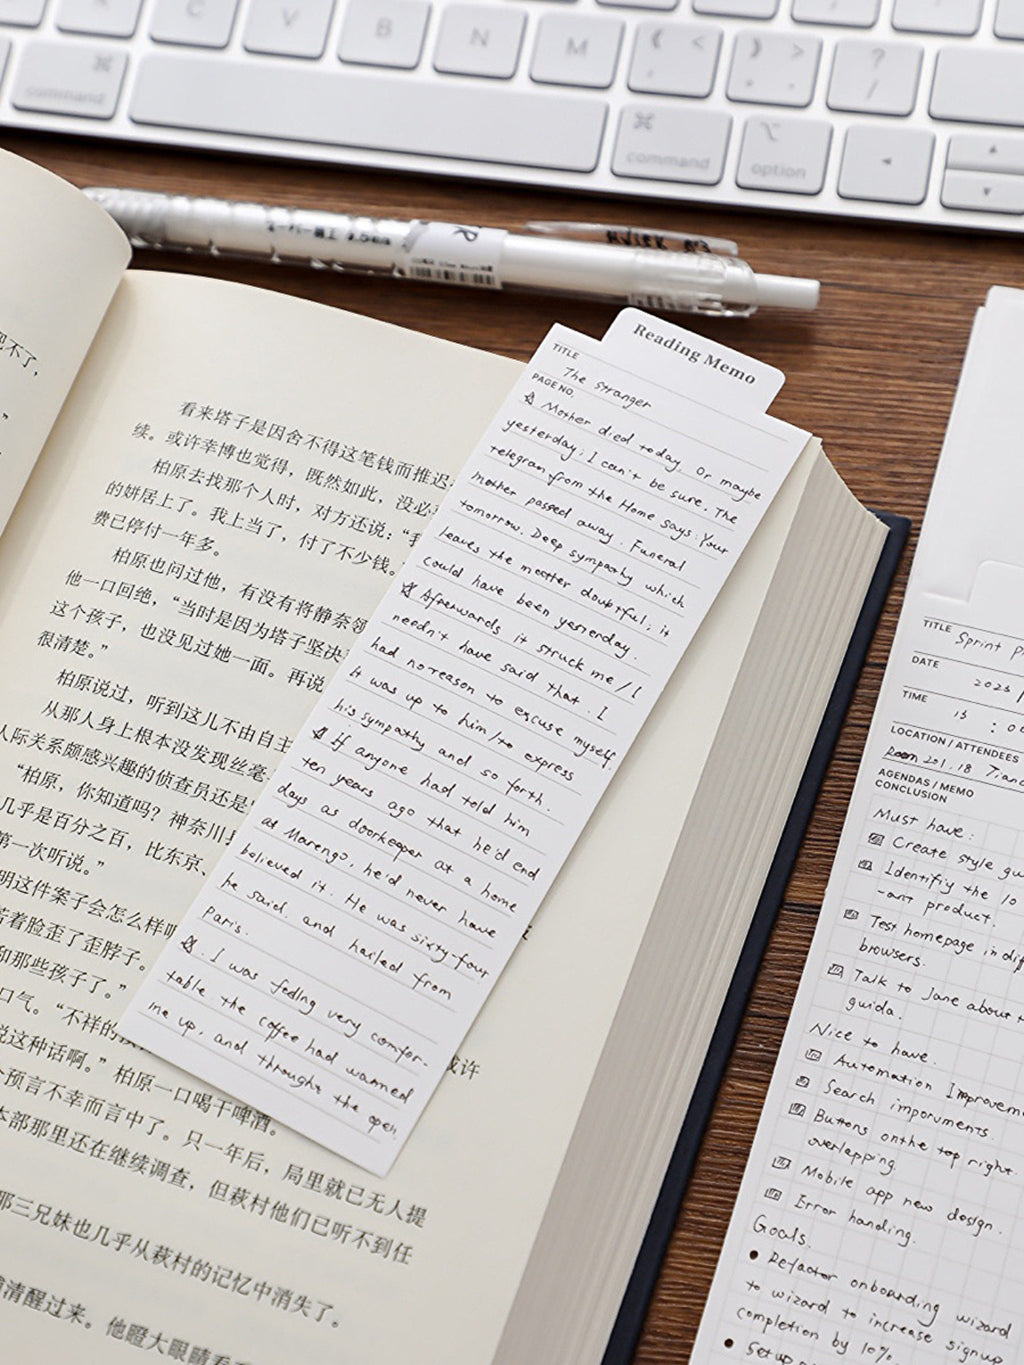 C
V
B
N
M
<
>
?
/
command
command
option
Reading Memo
TITLE
The stranger
PAGE NO.
Mother died today. Or maybe
yesterday; I can't be sure. The
telegram from the Home says: Your
mother passed away. Funeral
tomorrow. Deep sympathy which
leaves the matter doubtful; it
could have been yesterday.
Afterwards it struck me / I
needn't have said that. I
had no reason to excuse myself.
it was up to him / to express
his sympathy and so forth.
If anyone had told him
ten years ago that he'd end
days as doorkeeper at a home
at Marengo, he'd never have
believed it. He was sixty-four
he said. and hailed from
Paris.
I was feeling very comfor-
table the coffee had warmed
me up, and through the open
把不了,
看来塔子是因舍不得这笔钱而推迟
续。或许幸博也觉得，既然如此，没必
柏原去找那个人时，对方还说：“我
的姘居上了。我上当了，付了不少钱。
费已停付一年多。
柏原也问过他，有没有将静奈领
他一口回绝，“当时是因为塔子坚决
这个孩子，也没见过她一面。再说
很清楚。”
柏原说过，听到这儿不由自主
从那人身上根本没发现丝毫
人际关系颇感兴趣的侦查员还是
“柏原，你知道吗？神奈川县
几乎是百分之百，比东京、
第一次听说。”
明这件案子会怎么样呢
若着脸歪了歪脖子。
和那些孩子了。”
口气。“不祥的
或许
说这种话啊。”柏原一口喝干啤酒。
个预言不幸而言中了。只一年后，局里就已无人提
本部那里还在继续调查，但萩村他们已听不到任
那三兄妹也几乎从萩村的记忆中消失了。
清醒过来。他瞪大眼睛看
TITLE
Sprint
DATE
2023 /
TIME
13 : 00
LOCATION / ATTENDEES
Room 201.18
AGENDAS / MEMO
CONCLUSION
Must have:
Create style gu
Identifiy the 10
-ant product.
Test homepage in dif
browsers.
Talk to Jane about
guida.
Nice to have.
Automation Improvem
Search imporvments.
Buttons onthe top right.
overlapping.
Mobile app new design.
Error handing.
Goals.
Refactor onboarding wizard
to wizard to increase signup
completion by 10%
Setup